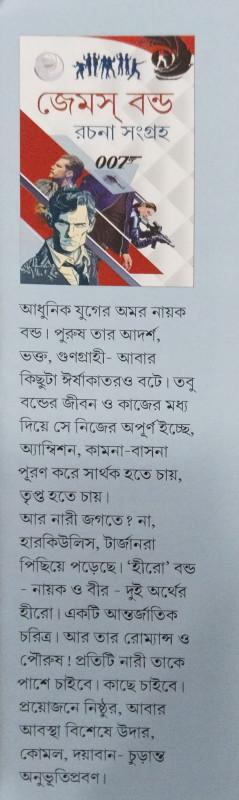 জেমস্ বন্ড
রচনা সংগ্রহ
007
আধুনিক যুগের অমর নায়ক
বন্ড। পুরুষ তার আদর্শ,
ভক্ত, গুণগ্রাহী- আবার
কিছুটা ঈর্ষাকাতরও বটে। তবু
বন্ডের জীবন ও কাজের মধ্য
দিয়ে সে নিজের অপূর্ণ ইচ্ছে,
অ্যাম্বিশন, কামনা-বাসনা
পূরণ করে সার্থক হতে চায়,
তৃপ্ত হতে চায়।
আর নারী জগতে? না,
হারকিউলিস, টার্জানরা
পিছিয়ে পড়েছে। ‘হীরো’ বন্ড
- নায়ক ও বীর - দুই অর্থের
হীরো। একটি আন্তর্জাতিক
চরিত্র। আর তার রোম্যান্স ও
পৌরুষ! প্রতিটি নারী তাকে
পাশে চাইবে। কাছে চাইবে।
প্রয়োজনে নিষ্ঠুর, আবার
আবস্থা বিশেষে উদার,
কোমল, দয়াবান- চুড়ান্ত
অনুভূতিপ্রবণ।